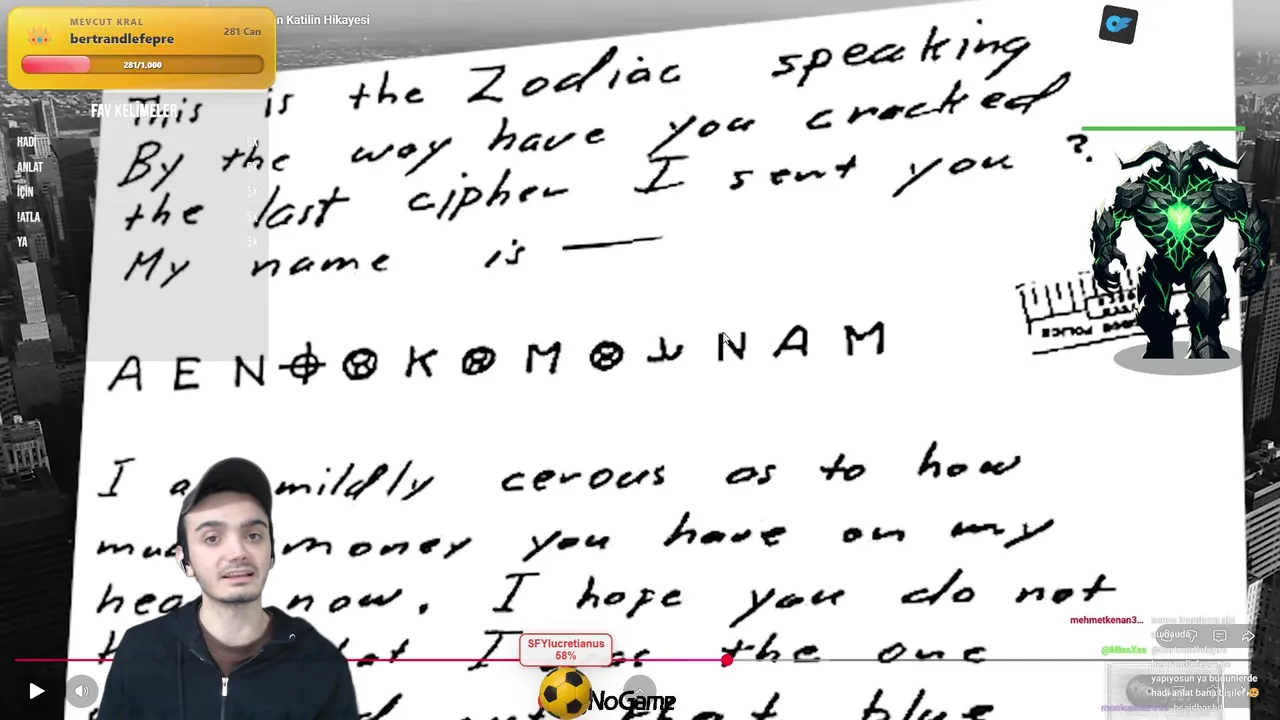 MEVCUT KRAL
bertrandlefepre
281 Can
281/1,000
n Katilin Hikayesi
FAV KELİMELER
HADİ 6X
ANLAT
İÇİN 5X
!ATLA 5X
YA 5X
This is the Zodiac speaking
By the way have you cracked
the last cipher I sent you ?
My name is —
A E N K M N A M
I mildly cerous as to how
money you have on my
now. I hope you do not
I the one
that blue
POLICE
SFYlucretianus
58%
NoGame
mehmetkenan3...
@MissXss
yapıyosun ya bugünlerde
hadi anlat bana bişiler